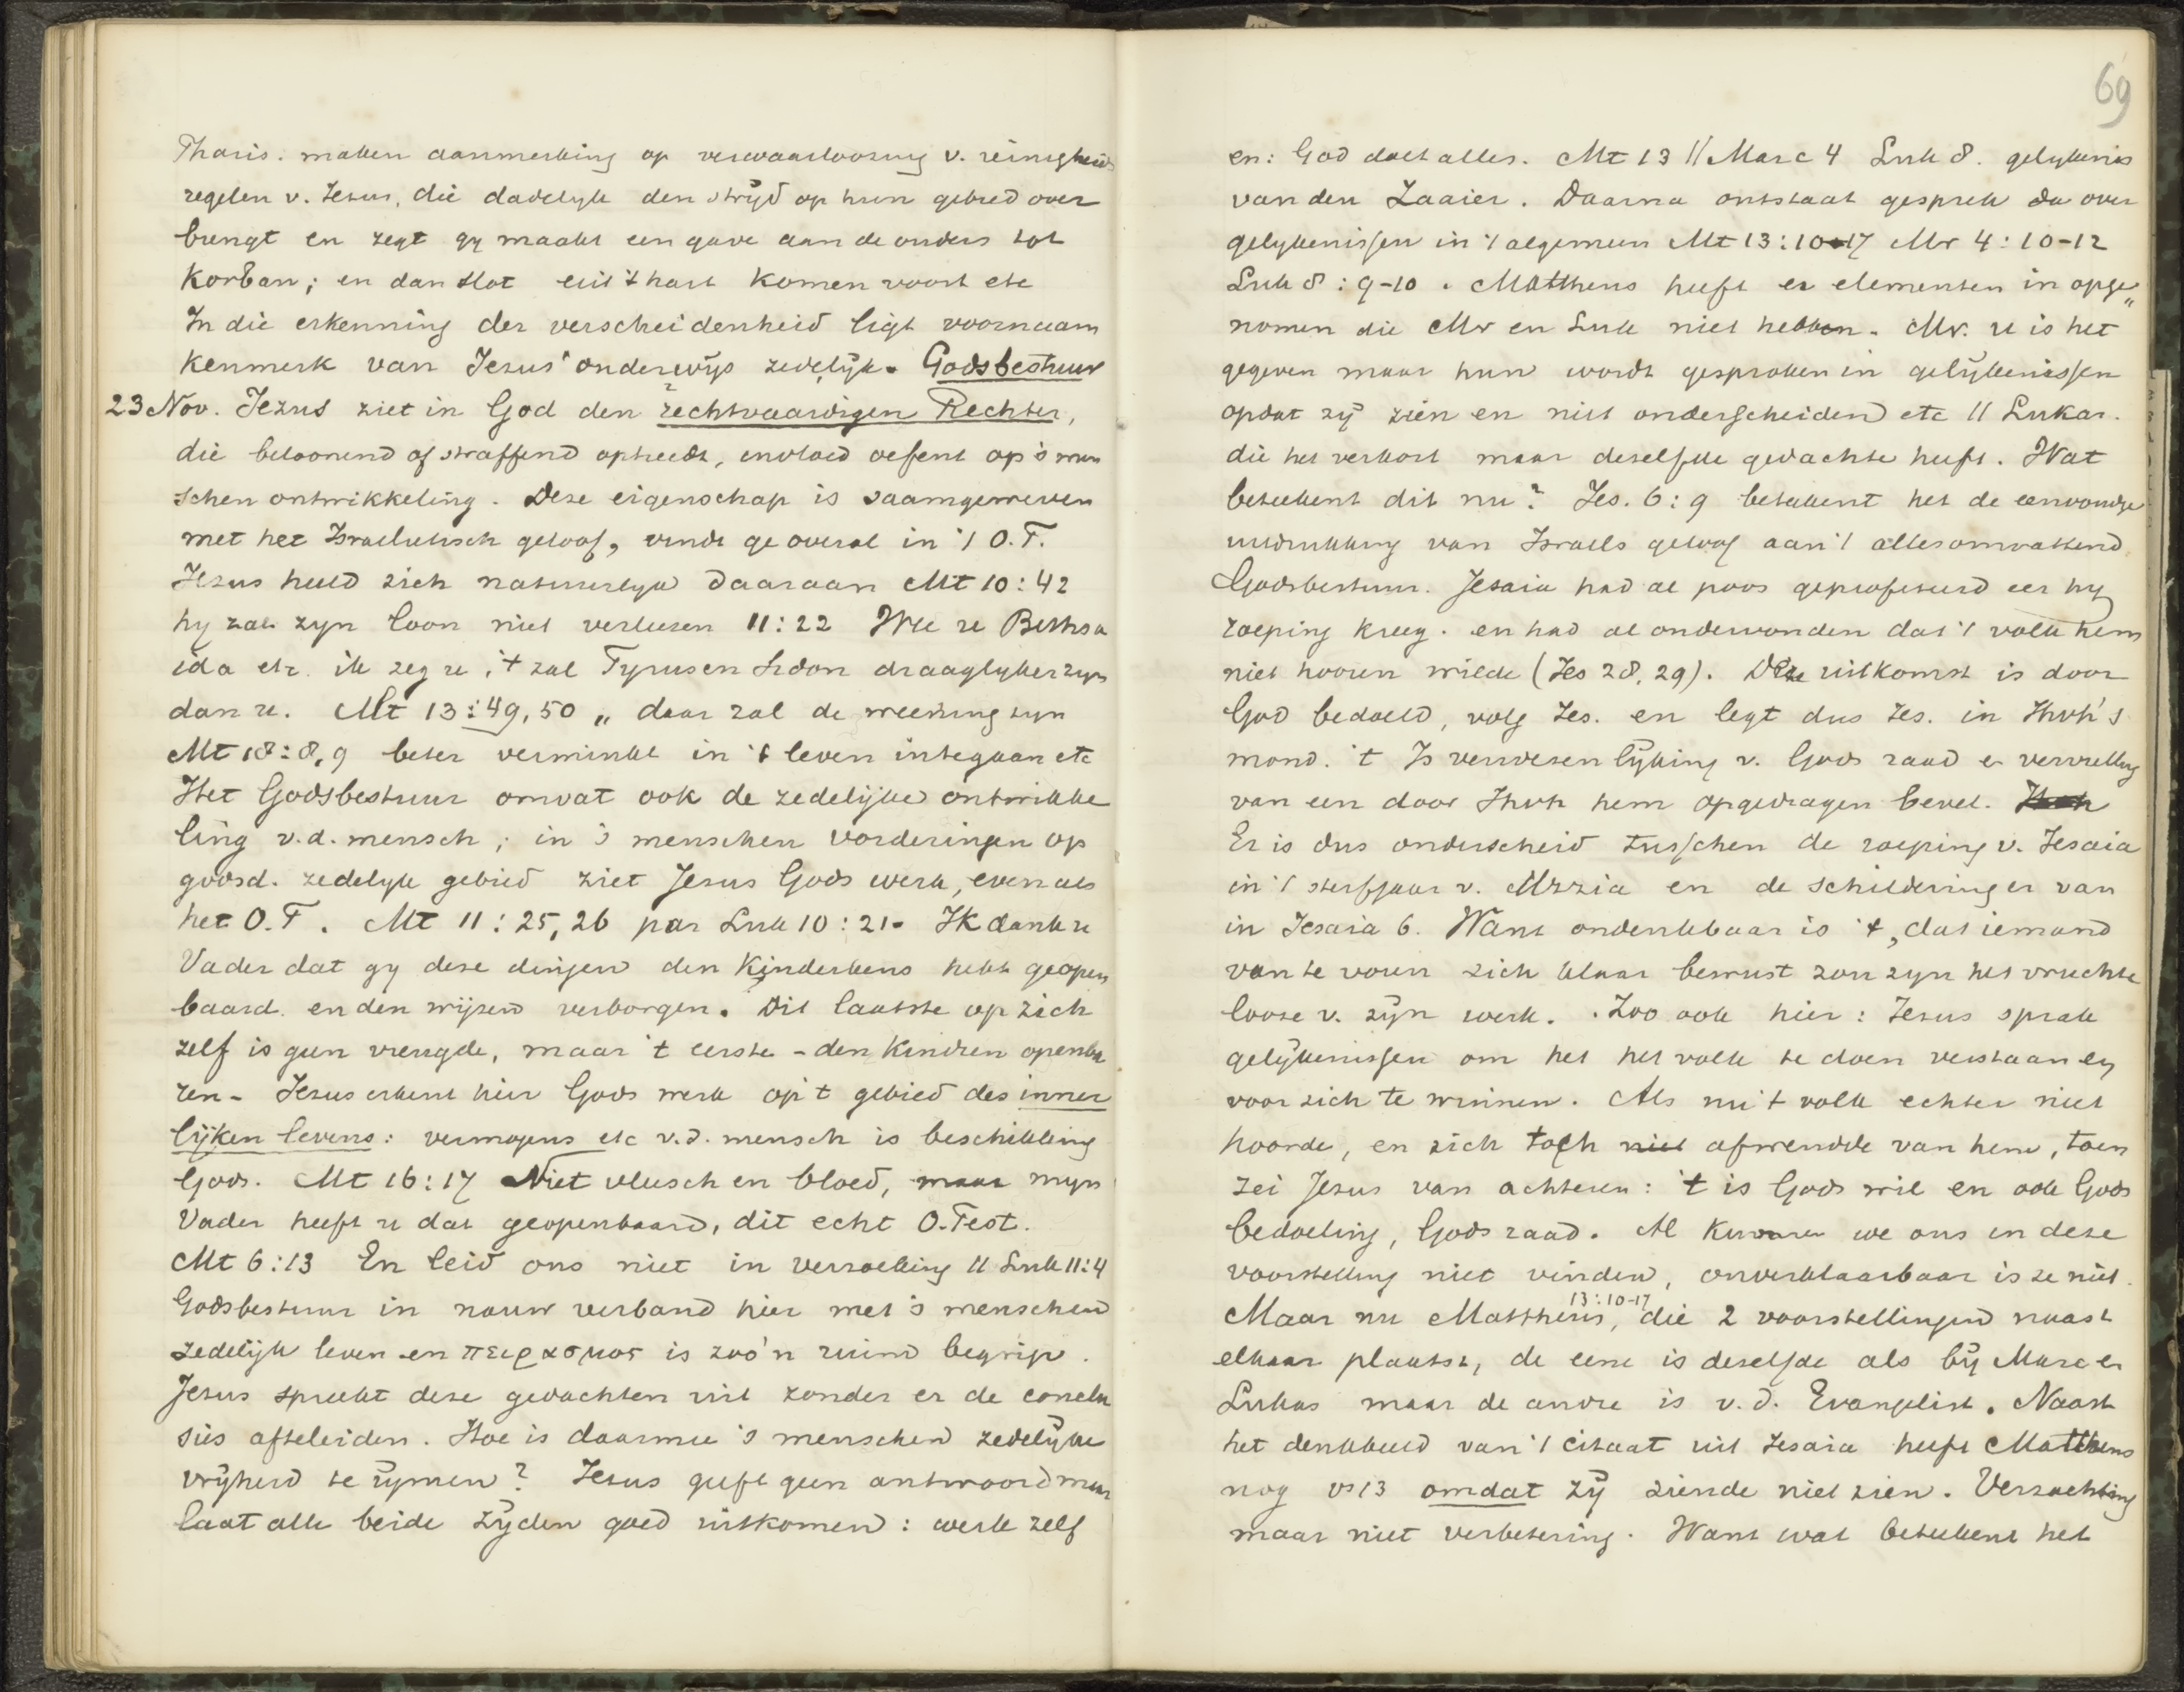 Pharis. maken aanmerking op verwaarloozing v. reinigheids
regelen v. Jezus, die dadelyk den strijd op hun gebied over
brengt en zegt gy maakt een gave aan de ouders tot
Korban; en dan slot uit 't hart komen voort etc
In die erkenning der verscheidenheid ligt voornaam
kenmerk van Jezus' onderwijs zedelijk. Godsbestuur
23 Nov. Jezus ziet in God den rechtvaardigen Rechter,
die beloonend of straffend optreedt, invloed oefent op 's men
schen ontwikkeling. Deze eigenschap is saamgeweven
met het Israelietisch geloof, vindt ge overal in 't O.T.
Jezus hield zich natuurlyk daaraan Mt 10:42
hy zal zyn loon niet verliezen 11:22 Wee u Bethsa
ida etc. ik zeg u, 't zal Tyrus en Sidon draaglyker zyn
dan u. Mt 13:49,50 „ daar zal de weening zyn
Mt 18:8,9 beter verminkt in 't leven integaan etc
Het Godsbestuur omvat ook de zedelijke ontwikke
ling v.d. mensch; in 's menschen vorderingen op
godsd. zedelyk gebied ziet Jezus Gods werk, evenals
het O.T. Mt 11:25,26 par Luk 10:21. Ik dank u
Vader dat gy deze dingen den kinderkens hebt geopen
baard. en den wijzen verborgen. Dit laatste op zich
zelf is geen vreugde, maar 't eerste - den kindren openba
ren - Jezus erkent hier Gods werk op 't gebied des inner
lijken levens: vermogens etc v.d. mensch is beschikking
Gods. Mt 16:17 Niet vleesch en bloed, maar myn
Vader heeft u dat geopenbaard, dit echt O.Test.
Mt 6:13 En leid ons niet in verzoeking || Luk 11:4
Godsbestuur in nauw verband hier met 's menschen
zedelijk leven en πειρασμος is zoo'n ruim begrip.
Jezus spreekt deze gedachten uit zonder er de conclu
sies afteleiden. Hoe is daarmee 's menschen zedelijke
vrijheid te rijmen? Jezus geeft geen antwoord maar
laat alle beide zijden goed uitkomen: werk zelf
69
en: God doet alles. Mt 13 || Marc 4 Luk 8. gelykenis
van den Zaaier. Daarna ontstaat gesprek da over
gelykenissen in 't algemeen Mt 13:10-17 Mr 4:10-12
Luk 8:9-10. Mattheus heeft er elementen in opge„
nomen die Mr en Luk niet hebben. Mr. u is het
gegeven maar hun wordt gesproken in gelijkenissen
opdat zij zien en niet onderscheiden etc || Lukas.
die het verkort maar deselfde gedachte heeft. Wat
beteekent dit nu? Jes. 6:9 beteekent het de eenvoudige
uitdrukking van Israels geloof aan 't allesomvattend
Godsbestuur. Jesaia had al poos geprofeteerd eer hy
roeping kreeg. en had al ondervonden dat 't volk hem
niet hooren wilde (Jes 28, 29). Deze uitkomst is door
God bedoeld, volg Jes. en legt dus Jes. in Jhvh's
mond. 't Is verwezenlijking v. Gods raad en vervulling
van een door Jhvh hem opgedragen bevel.
Er is dus onderscheid tusschen de roeping v. Jesaia
in 't sterfjaar v. Uzzia en de schildering er van
in Jesaia 6. Want ondenkbaar is 't, dat iemand
van te voren zich klaar bewust zou zyn het vruchte
looze v. zijn werk. Zoo ook hier: Jezus sprak
gelijkenissen om het het volk te doen verstaan en
voor zich te winnen. Als nu 't volk echter niet
hoorde, en zich toch niet afwendde van hem, toen
zei Jezus van achteren: 't is Gods wil en ook Gods
bedoeling, Gods raad. Al kunnen we ons in deze
voorstelling niet vinden, onverklaarbaar is ze niet.
13:10-17
Maar nu Mattheus, die 2 voorstellingen naast
elkaar plaatst, de eene is deselfde als bij Marc en
Lukas maar de andre is v.d. Evangelist. Naast
het denkbeeld van 't citaat uit Jesaia heeft Mattheus
nog vs 13 omdat zij ziende niet zien. Verzachting
maar niet verbetering. Want wat beteekent het